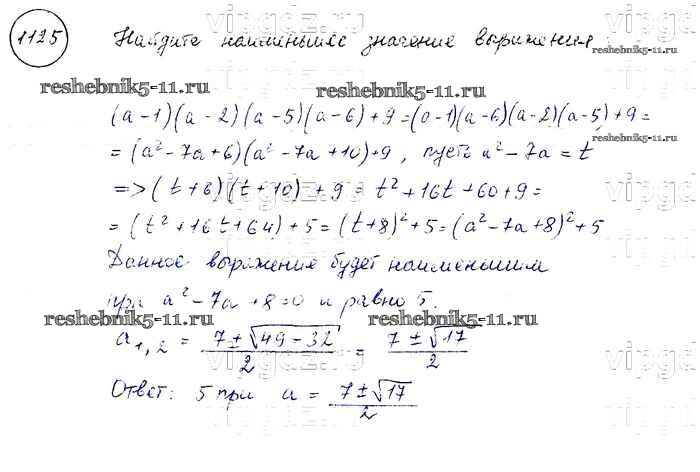 1125
Найдите наименьшее значение выражения:
reshebnik5-11.ru
reshebnik5-11.ru
(a-1)(a-2)(a-5)(a-6)+9=(a-1)(a-6)(a-2)(a-5)+9=
= (a²-7a+6)(a²-7a+10)+9, пусть a²-7a=t
=>(t+6)(t+10)+9=t²+16t+60+9=
=(t²+16t+64)+5=(t+8)²+5=(a²-7a+8)²+5
Данное выражение будет наименьшим
при a²-7a+8=0 и равно 5.
reshebnik5-11.ru
reshebnik5-11.ru
a₁,₂ = (7±√(49-32))/2 = (7±√17)/2
Ответ: 5 при a = (7±√17)/2